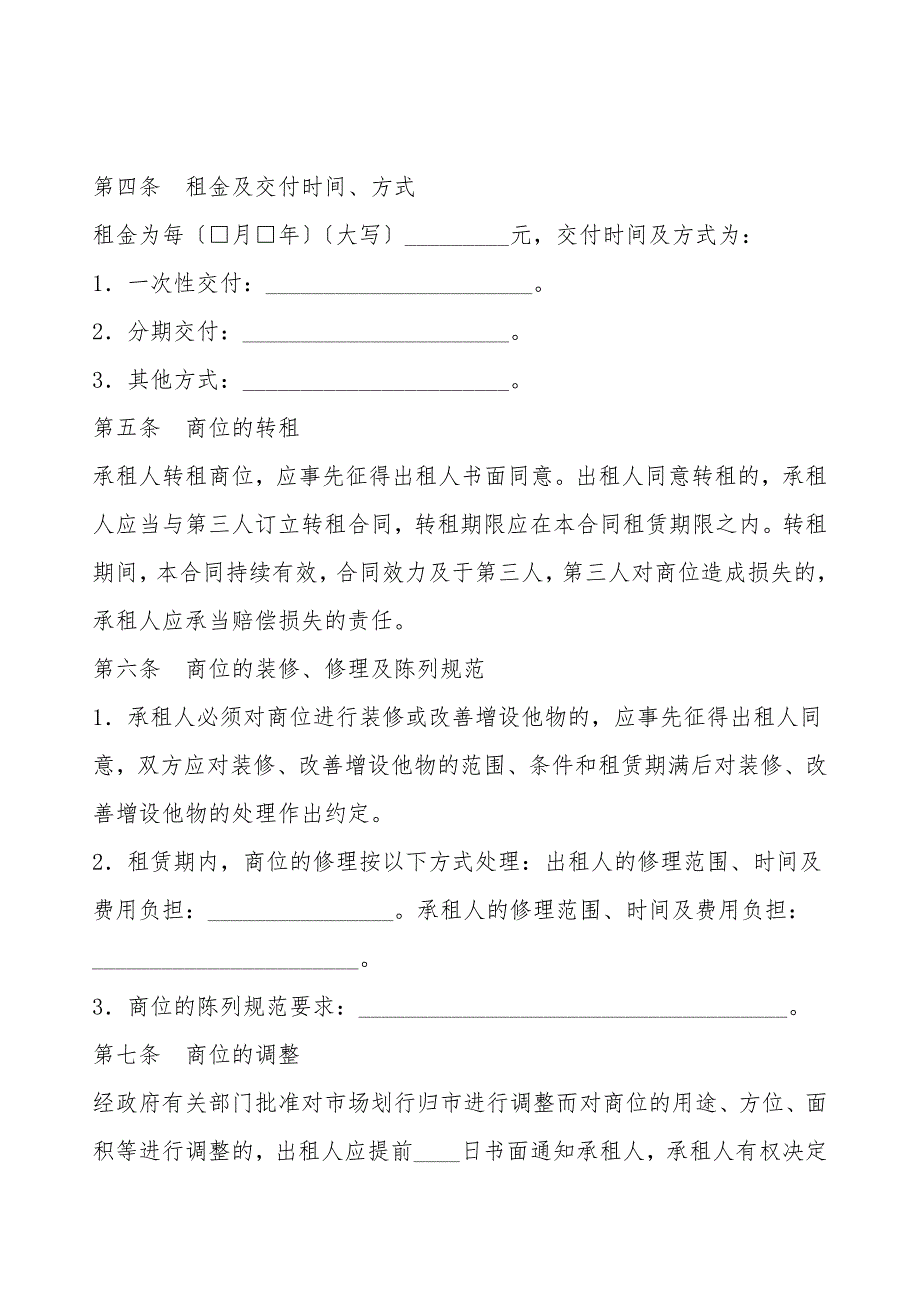 第四条　租金及交付时间、方式
租金为每〔□月□年〕〔大写〕_________元，交付时间及方式为：
1．一次性交付：_______________________。
2．分期交付：_______________________。
3．其他方式：_______________________。
第五条　商位的转租
承租人转租商位，应事先征得出租人书面同意。出租人同意转租的，承租
人应当与第三人订立转租合同，转租期限应在本合同租赁期限之内。转租
期间，本合同持续有效，合同效力及于第三人，第三人对商位造成损失的，
承租人应承当赔偿损失的责任。
第六条　商位的装修、修理及陈列规范
1．承租人必须对商位进行装修或改善增设他物的，应事先征得出租人同
意，双方应对装修、改善增设他物的范围、条件和租赁期满后对装修、改
善增设他物的处理作出约定。
2．租赁期内，商位的修理按以下方式处理：出租人的修理范围、时间及
费用负担：________________。承租人的修理范围、时间及费用负担：
_______________________。
3．商位的陈列规范要求：_____________________________________。
第七条　商位的调整
经政府有关部门批准对市场划行归市进行调整而对商位的用途、方位、面
积等进行调整的，出租人应提前____日书面通知承租人，承租人有权决定